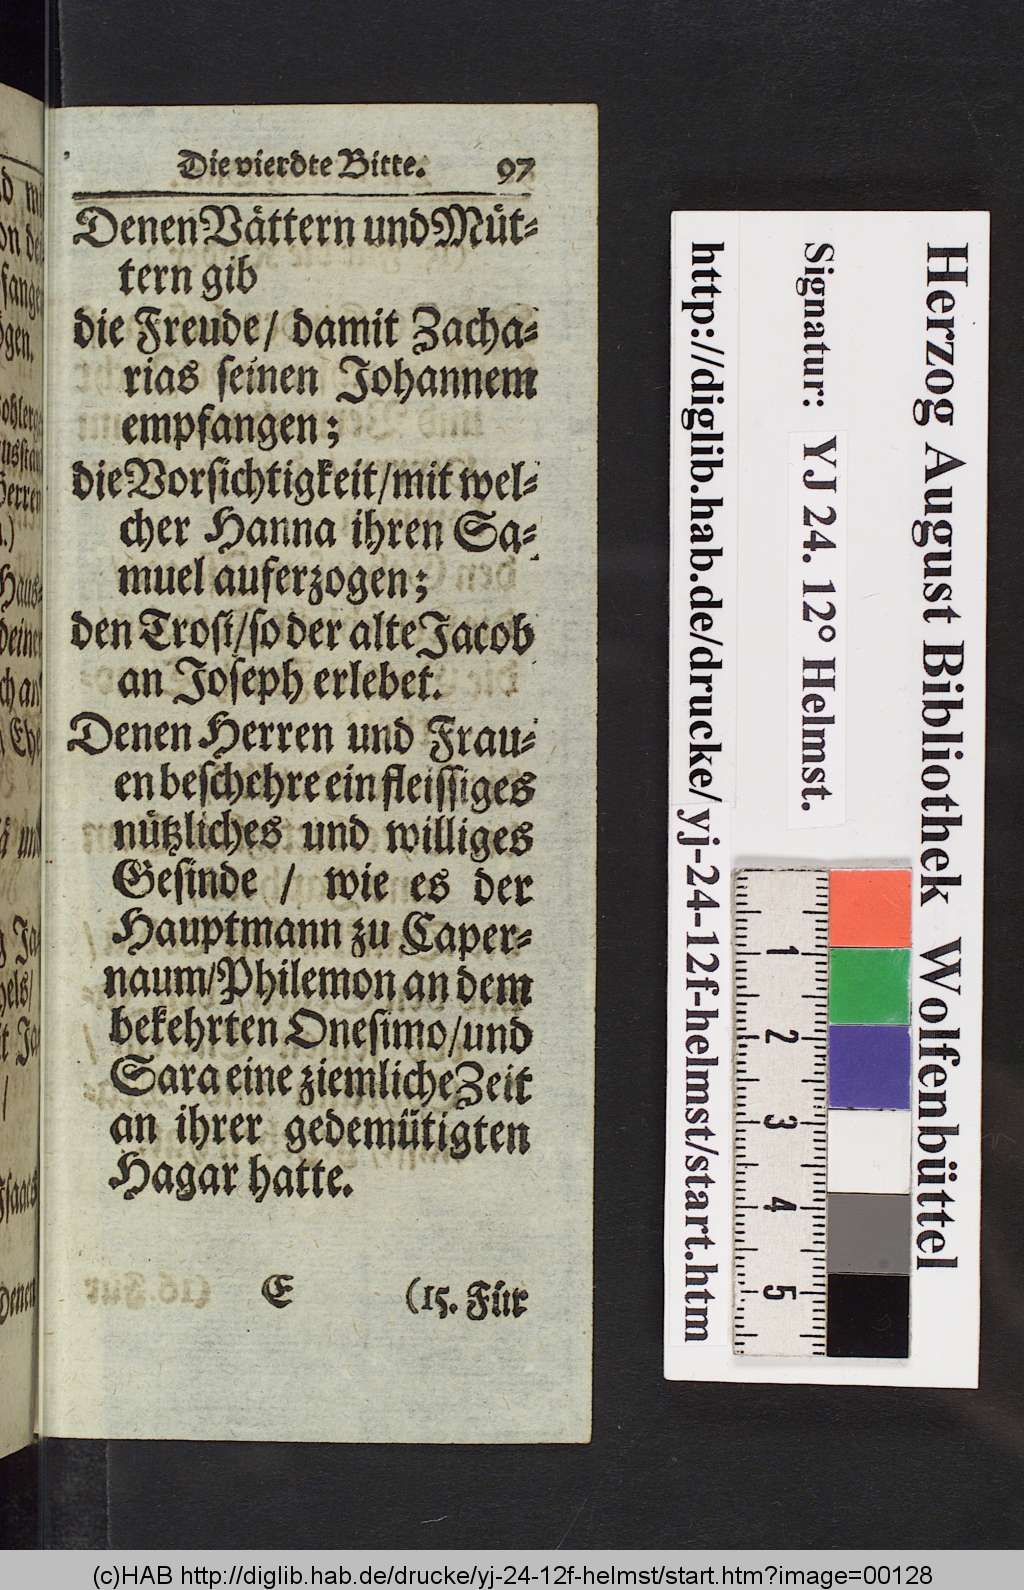 Die vierdte Bitte. 97
Denen Vättern und Müt-
tern gib
die Freude/ damit Zacha-
rias seinen Johannem
empfangen;
die Vorsichtigkeit/mit wel-
cher Hanna ihren Sa-
muel auferzogen;
den Trost/so der alte Jacob
an Joseph erlebet.
Denen Herren und Frau-
en beschehre ein fleissiges
nützliches und williges
Gesinde / wie es der
Hauptmann zu Caper-
naum/Philemon an dem
bekehrten Onesimo/und
Sara eine ziemliche Zeit
an ihrer gedemütigten
Hagar hatte.
E (15. Für
Herzog August Bibliothek Wolfenbüttel
Signatur: YJ 24. 12° Helmst.
http://diglib.hab.de/drucke/yj-24-12f-helmst/start.htm
1
2
3
4
5
(c)HAB http://diglib.hab.de/drucke/yj-24-12f-helmst/start.htm?image=00128